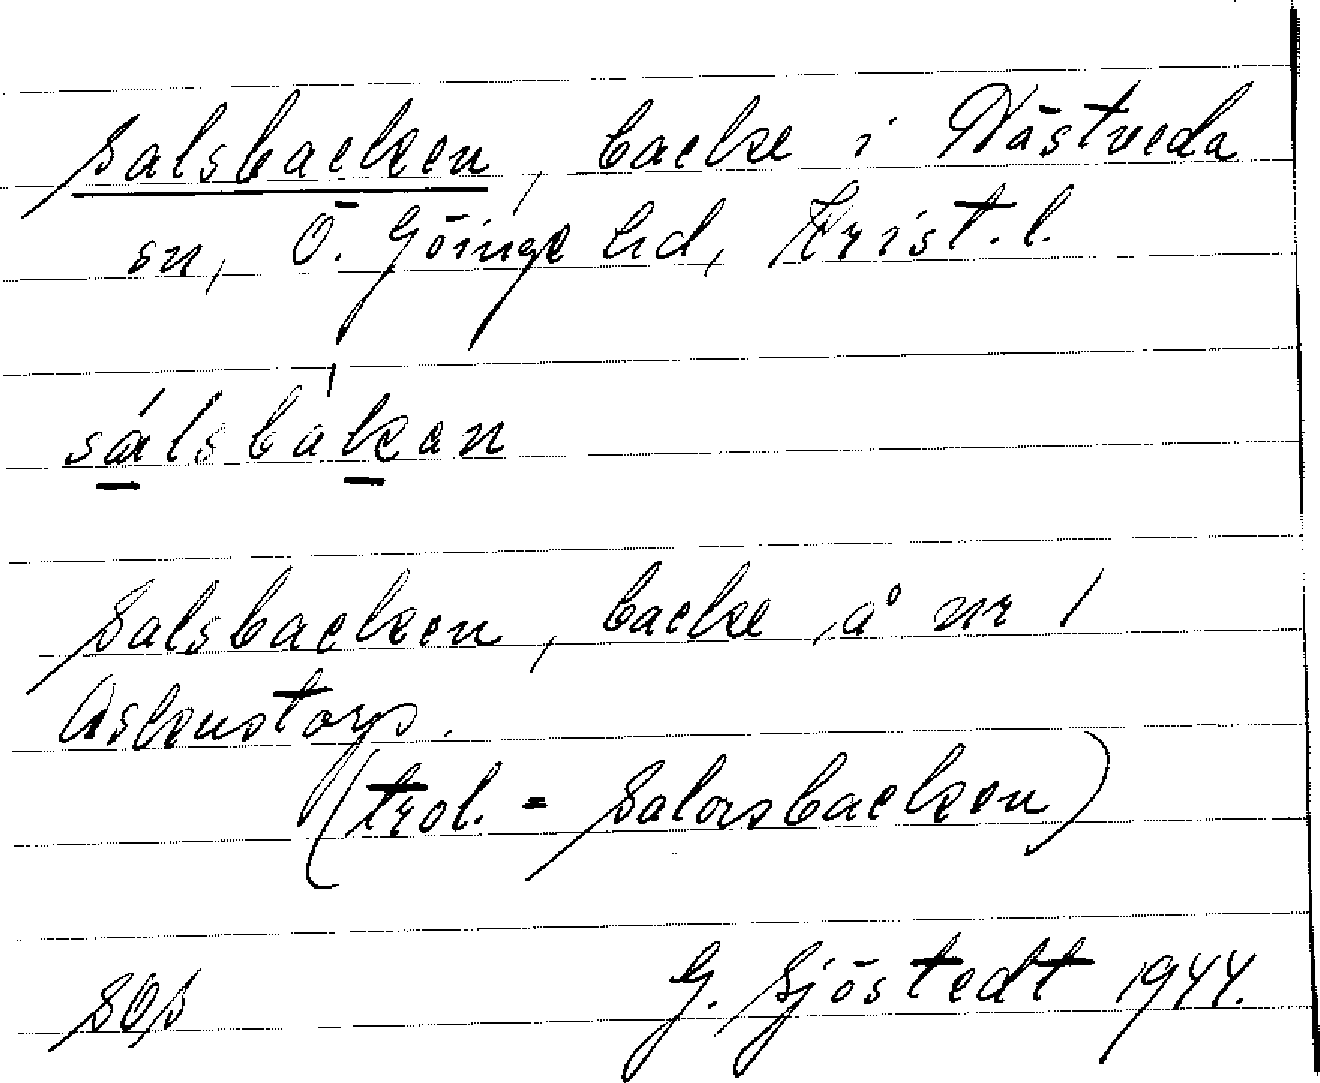 Salsbacken, backe i Västveda
sn, Ö. Göinge hd, Krist. l.
sálsbàkan
Salsbacken, backe, å nr 1
Askenstorp.
(trol. = Salersbacken)
SOS G. Sjöstedt 1944.